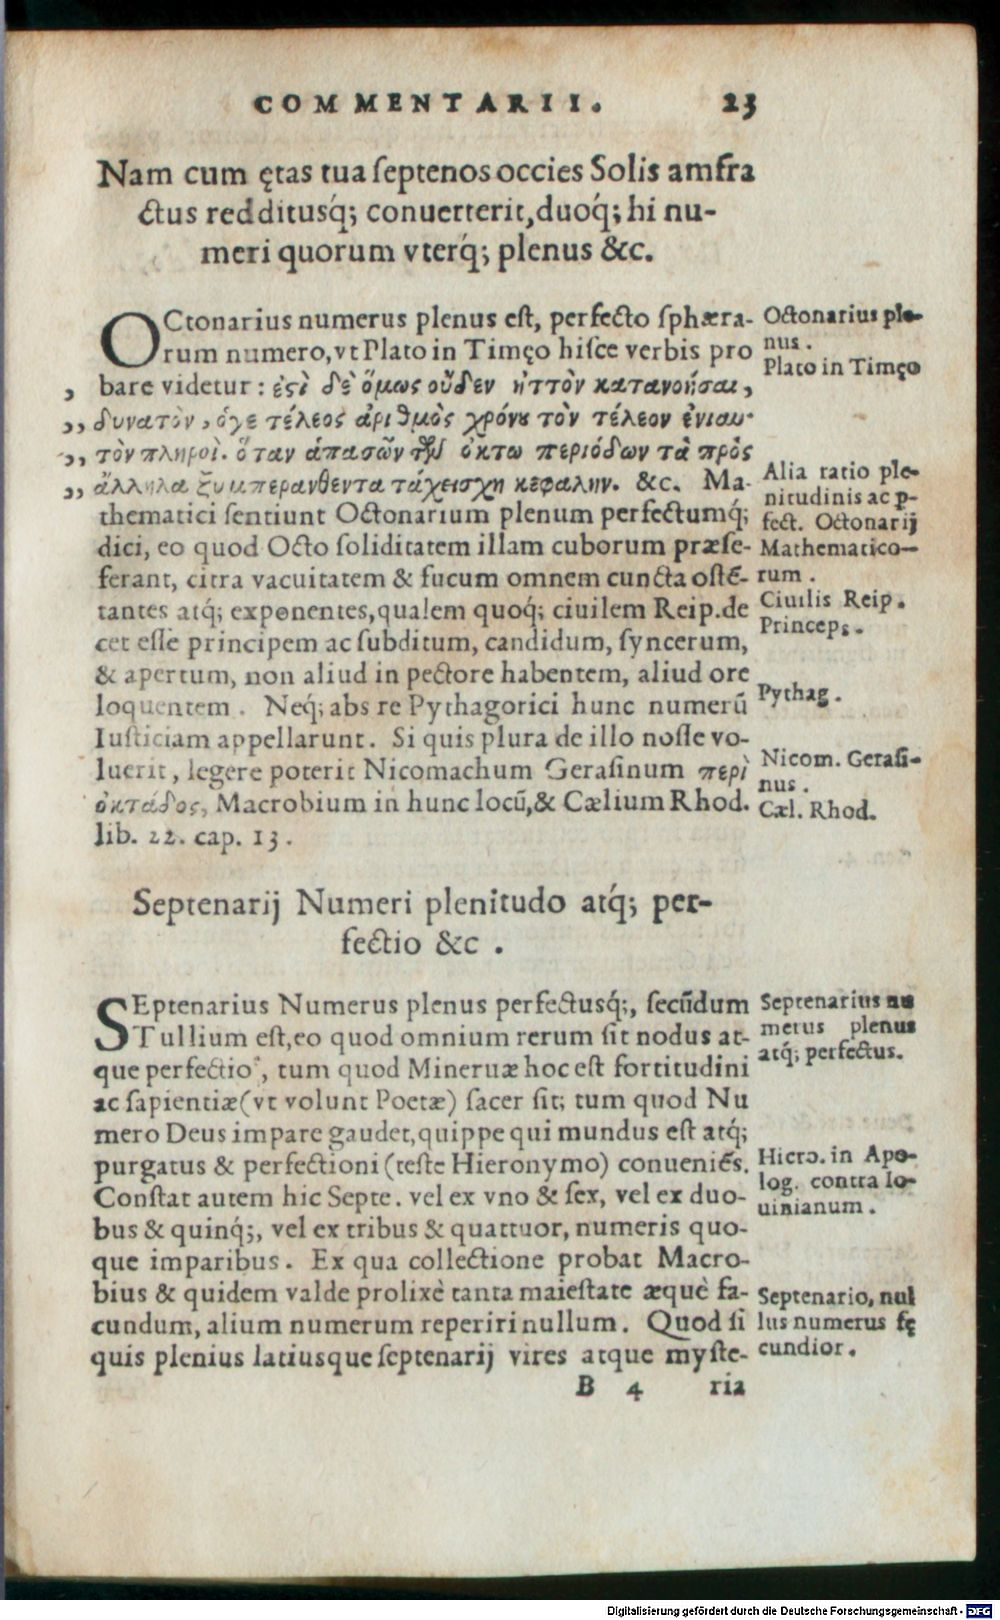 COMMENTARII. 23
Nam cum ętas tua ſeptenos occies Solis amfra
ctus redditusq́; conuerterit, duoq́; hi nu-
meri quorum vterq́; plenus &c.
OCtonarius numerus plenus eſt, perfecto ſphæra-
rum numero, vt Plato in Timęo hiſce verbis pro
bare videtur: ἐςὶ δὲ ὅμως οὔδεν ἡττὸν κατανοήσαι,
δυνατὸν, ὁγε τέλεος ἀριθμὸς χρόνȣ τὸν τέλεον ἐνιαυ-
τὸν πληροῖ. ὅταν ἁπασῶν τῶν ὀκτω περιόδων τὰ πρὸς
ἄλληλα ξυμπερανθεντα τάχεισχη κεφαλην. &c. Ma-
thematici ſentiunt Octonarium plenum perfectumq́;
dici, eo quod Octo ſoliditatem illam cuborum præſe-
ferant, citra vacuitatem & fucum omnem cuncta oſtē-
tantes atq́; exponentes, qualem quoq́; ciuilem Reip. de
cet eſſe principem ac ſubditum, candidum, ſyncerum,
& apertum, non aliud in pectore habentem, aliud ore
loquentem. Neq́; abs re Pythagorici hunc numerū
Iuſticiam appellarunt. Si quis plura de illo noſſe vo-
luerit, legere poterit Nicomachum Geraſinum περὶ
ὀκτάδος, Macrobium in hunc locū, & Cælium Rhod.
lib. 22. cap. 13.
Octonarius ple-
nus.
Plato in Timęo
Alia ratio ple-
nitudinis ac ꝑ-
fect. Octonarij
Mathematico-
rum.
Ciuilis Reip.
Princeps.
Pythag.
Nicom. Geraſi-
nus.
Cæl. Rhod.
Septenarij Numeri plenitudo atq́; per-
fectio &c.
SEptenarius Numerus plenus perfectusq́;, ſecūdum
Tullium eſt, eo quod omnium rerum ſit nodus at-
que perfectio, tum quod Mineruæ hoc eſt fortitudini
ac ſapientiæ (vt volunt Poetæ) ſacer ſit; tum quod Nu
mero Deus impare gaudet, quippe qui mundus eſt atq́;
purgatus & perfectioni (teſte Hieronymo) conueniēs.
Conſtat autem hic Septe. vel ex vno & ſex, vel ex duo-
bus & quinq́;, vel ex tribus & quattuor, numeris quo-
que imparibus. Ex qua collectione probat Macro-
bius & quidem valde prolixè tanta maieſtate æquè fa-
cundum, alium numerum reperiri nullum. Quod ſi
quis plenius latiusque ſeptenarij vires atque myſte-
Septenarius nu
merus plenus
atq́; perfectus.
Hiero. in Apo-
log. contra Io-
uinianum.
Septenario, nul
lus numerus fę
cundior.
B 4 ria
Digitalisierung gefördert durch die Deutsche Forschungsgemeinschaft - DFG